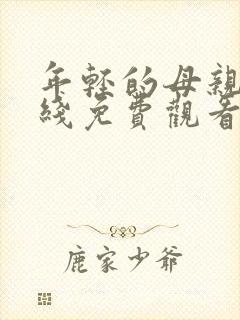 年輕的母親
綫免費觀看
鹿家少爺